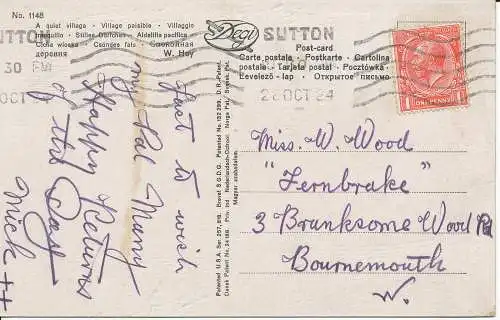 No. 1148
A quiet village · Village paisible · Villaggio
tranquillo · Stilles Dörfchen · Aldehita pacifica
Cicha wioska · Csöndes falu · Спокойная
деревня W. Hoy
Degi
Post-card
Carte postale · Postkarte · Cartolina
postale · Tarjeta postal · Pocztówka
Levelező - lap · Открытое письмо
SUTTON
30 PM
OCT 24
SUTTON
28 OCT 24
ONE PENNY
Just to wish
my Pal Many
Happy Returns
of the Day
Mick ++
Patented U.S.A. Ser. 257, 816. Brevet S G. D G. Patented No. 152 299. D. R.-Patent.
Dansk Patent No. 34 188. Priv. Ind Nederlandsch-Octrooi. Norge Pat. Svensk Pat.
Magyar szabadalom.
Miss. W. Wood
"Fernbrake"
3 Branksome Wood Rd
Bournemouth
W.